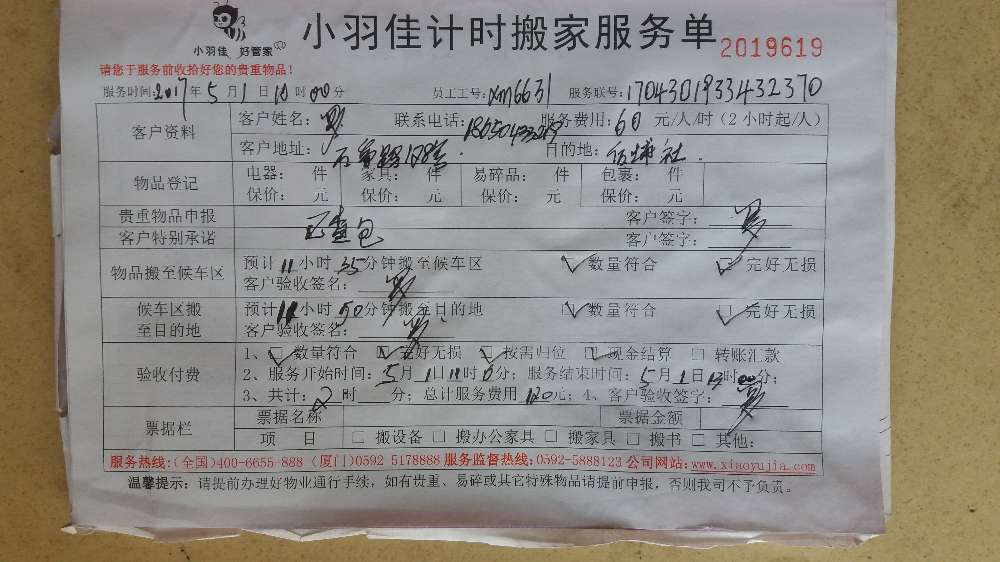 小羽佳 好管家
小羽佳计时搬家服务单 2019619
请您于服务前收拾好您的贵重物品!
服务时间: 2017年 5月 1日 10时 00分 员工工号: xm6631 服务联号: 1704301933432370
客户资料 客户姓名: 罗 联系电话: 服务费用: 60 元/人/时(2小时起/人)
客户地址: 目的地:
物品登记 电器: 件 家具: 件 易碎品: 件 包裹: 件
保价: 元 保价: 元 保价: 元 保价: 元
贵重物品申报 客户签字: 罗
客户特别承诺 已查包 客户签字:
物品搬至候车区 预计11小时35分钟搬至候车区 ☑数量符合 ☑完好无损
客户验收签名: 罗
候车区搬至目的地 预计11小时50分钟搬至目的地 ☑数量符合 ☑完好无损
客户验收签名: 罗
验收付费 1、☑数量符合 ☑完好无损 ☑按需归位 ☑现金结算 □转账汇款
2、服务开始时间: 5月1日11时0分; 服务结束时间: 5月1日 时00分;
3、共计: 2时 分; 总计服务费用 120元; 4、客户验收签字: 罗
票据栏 票据名称 票据金额
项 目 □搬设备 □搬办公家具 □搬家具 □搬书 □其他:
服务热线:(全国)400-6655-888 (厦门)0592 5178888 服务监督热线:0592-5888123 公司网站:www.xiaoyujia.com
温馨提示: 请提前办理好物业通行手续, 如有贵重、易碎或其它特殊物品请提前申报, 否则我司不予负责。